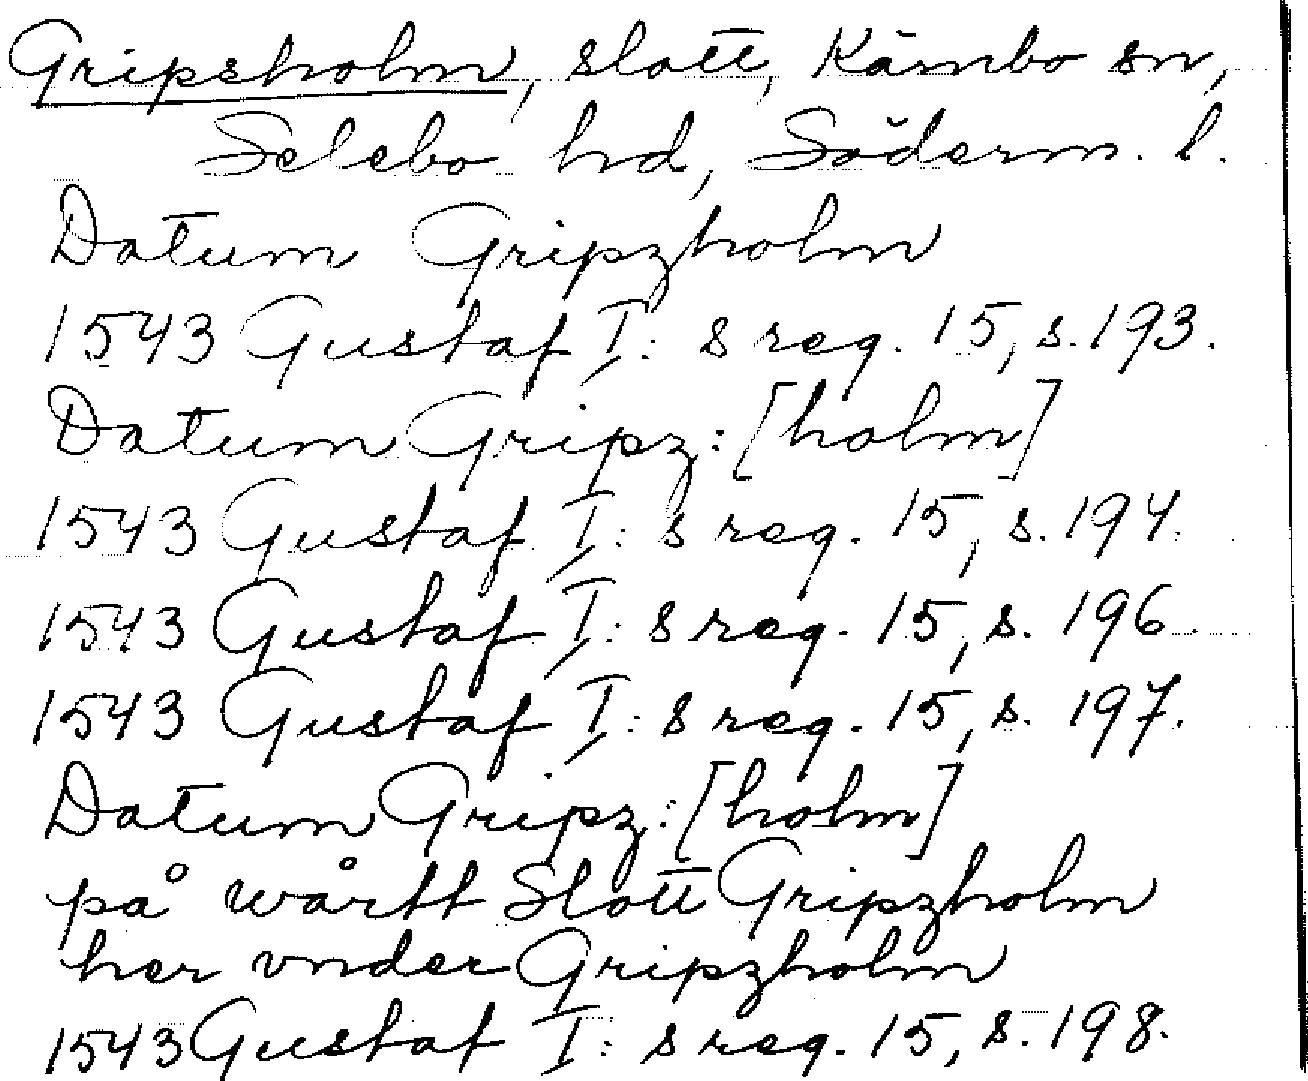 Gripsholm, slott, Kärnbo sn,
Selebo hd, Söderm. l.
Datum Gripzholm
1543 Gustaf I: s reg. 15, s. 193.
Datum Gripz:[holm]
1543 Gustaf I: s reg. 15, s. 194.
1543 Gustaf I: s reg. 15, s. 196
1543 Gustaf I: s reg. 15, s. 197.
Datum Gripz:[holm]
på wårtt Slott Gripzholm
her vnder Gripzholm
1543 Gustaf I: s reg. 15, s. 198.